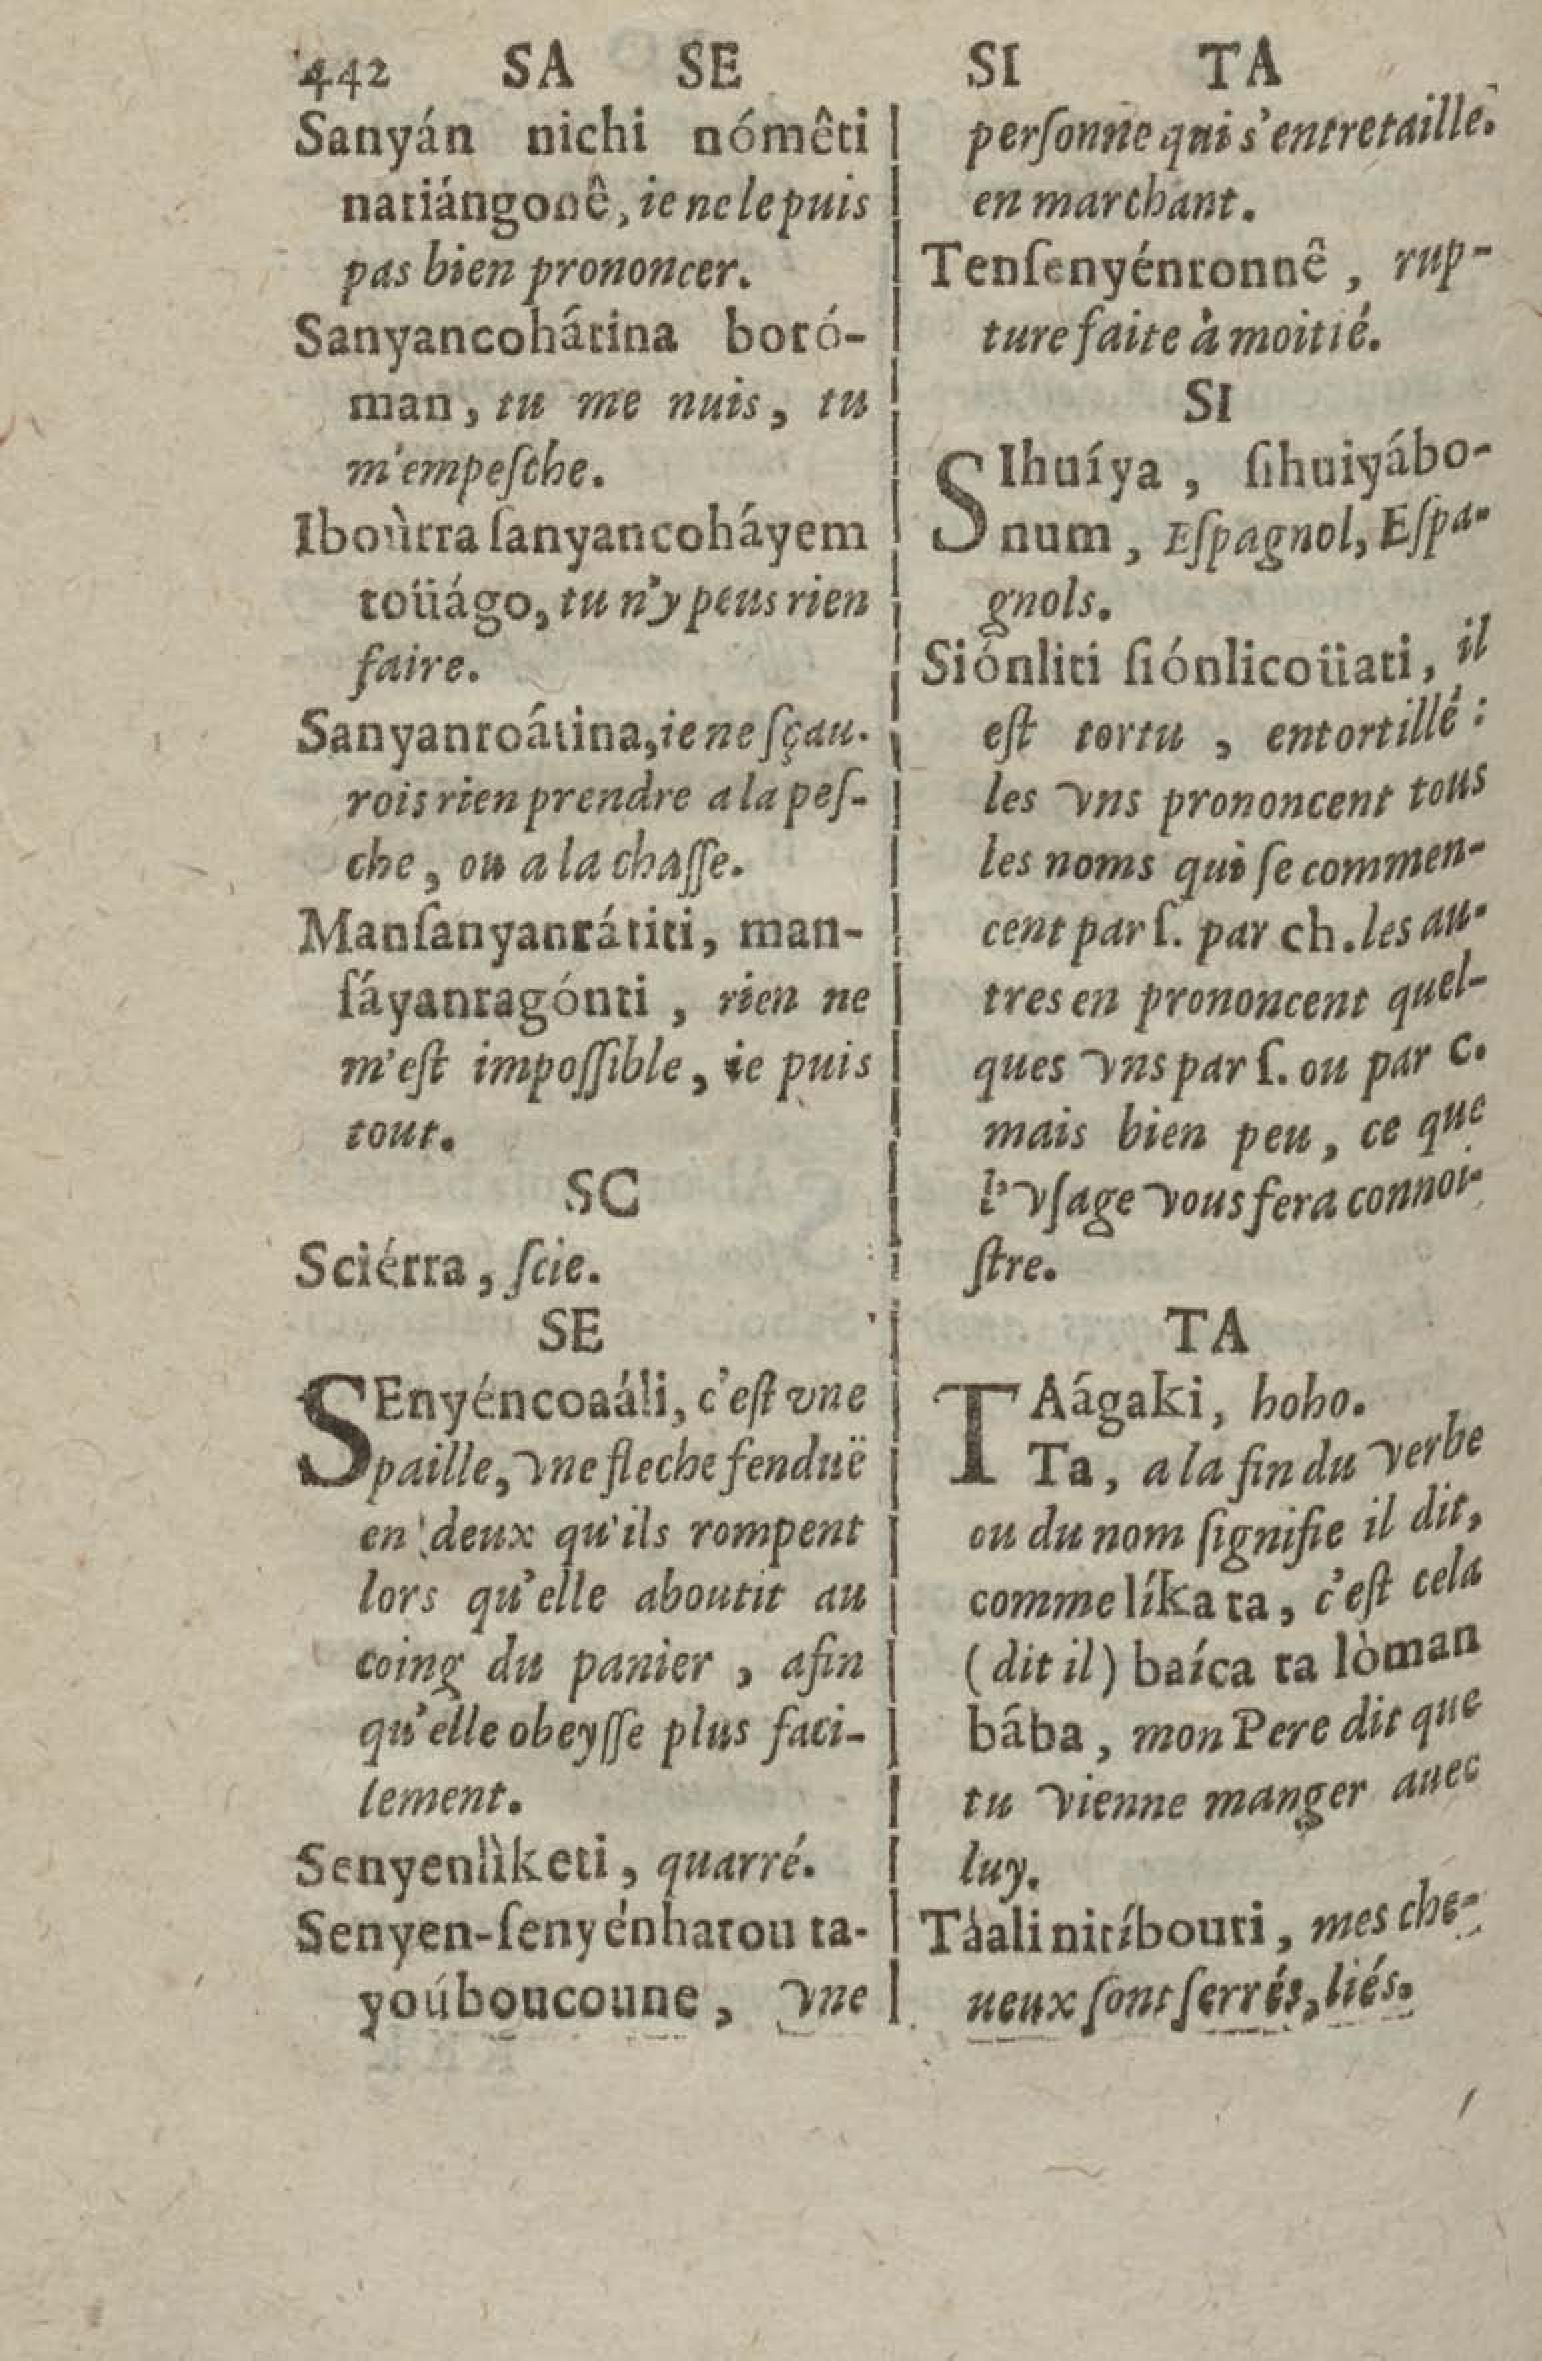 442 SA SE SI TA
Sanyán nichi nómêti
natiángonê, ie ne le puis
pas bien prononcer.
Sanyancohátina botó-
man, tu me nuis, tu
m'empeſche.
Iboùtra ſanyancoháyem
toüágo, tu n'y peus rien
faire.
Sanyantoátina, ie ne ſçau-
rois rien prendre a la peſ-
che, ou a la chaſſe.
Manſanyantátiti, man-
ſáyantagónti, rien ne
m'eſt impoſſible, ie puis
tout.
SC
Sciérra, ſcie.
SE
SEnyéncoaáli, c'eſt vne
paille, vne fleche fenduë
en deux qu'ils rompent
lors qu'elle aboutit au
coing du panier, afin
qu'elle obeyſſe plus faci-
lement.
Senyenlìketi, quarré.
Senyen-ſenyénhatou ta-
yoúboucoune, vne
perſonne qui s'entretaille
en marchant.
Tenſenyéntonnê, rup-
ture faite à moitié.
SI
SIhuíya, ſihuiyábo-
num, Eſpagnol, Eſpa-
gnols.
Siónliti ſiónlicoüati, il
eſt tortu, entortillé:
les vns prononcent tous
les noms qui ſe commen-
cent par ſ. par ch. les au-
tres en prononcent quel-
ques vns par ſ. ou par c.
mais bien peu, ce que
l'vſage vous fera connoi-
ſtre.
TA
TAágaki, hoho.
Ta, a la fin du verbe
ou du nom ſignifie il dit,
comme líka ta, c'eſt cela
(dit il) baíca ta lòman
bába, mon Pere dit que
tu vienne manger auec
luy.
Táali nitíbouti, mes che-
ueux ſont ſerrés, liés.